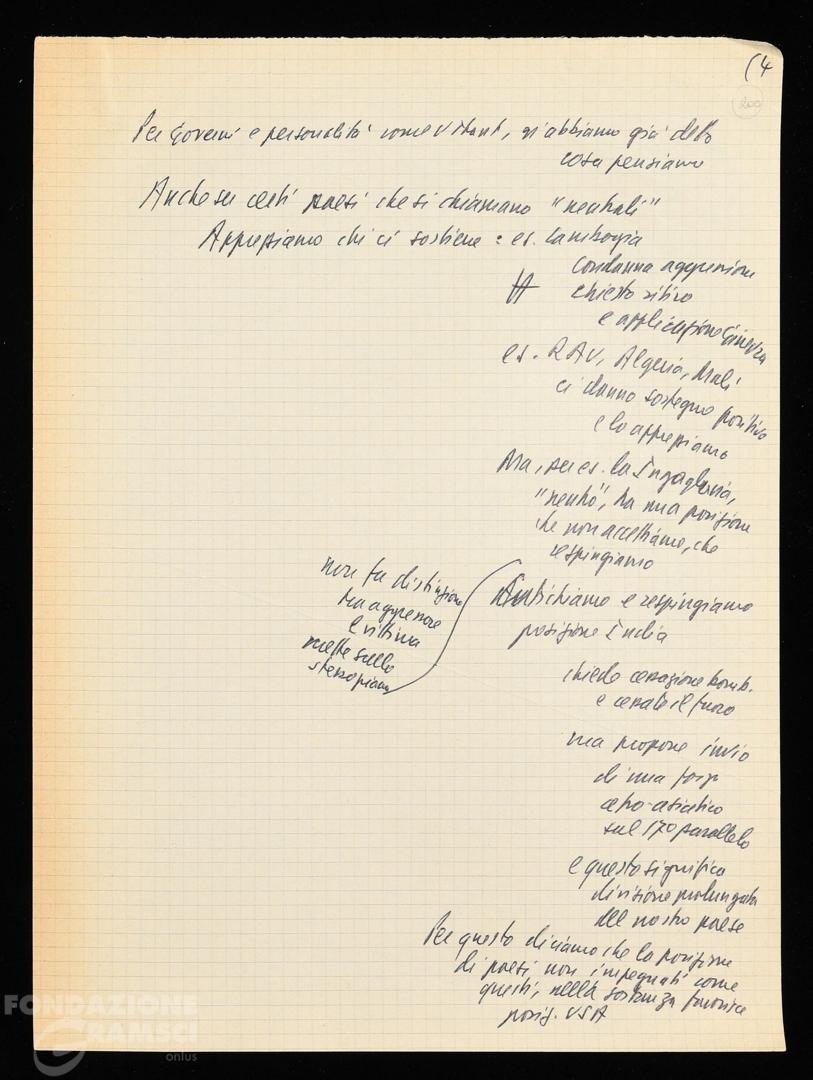 (4
200
Per governi e personalità come U Thant, vi abbiamo già detto
cosa pensiamo
Anche su certi paesi che si chiamano "neutrali"
Apprezziamo chi ci sostiene: es. Cambogia
condanna aggressione
chiesto ritiro
e applicazione Ginevra
es. RAU, Algeria, Mali
ci danno sostegno positivo
e lo apprezziamo
Ma, per es. la
ha una posizione
che non accettiamo, che
respingiamo
non fa distinzione
tra aggressore
e vittima
mette sullo
stesso piano
critichiamo e respingiamo
posizione India
chiede cessazione bomb.
e cessate il fuoco
ma propone invio
di una forza
afro-asiatica
sul 17º parallelo
e questo significa
divisione prolungata
del nostro paese
Per questo diciamo che la posizione
di paesi non impegnati come
questi, nella sostanza favorisce
posiz. USA
FONDAZIONE
GRAMSCI
onlus